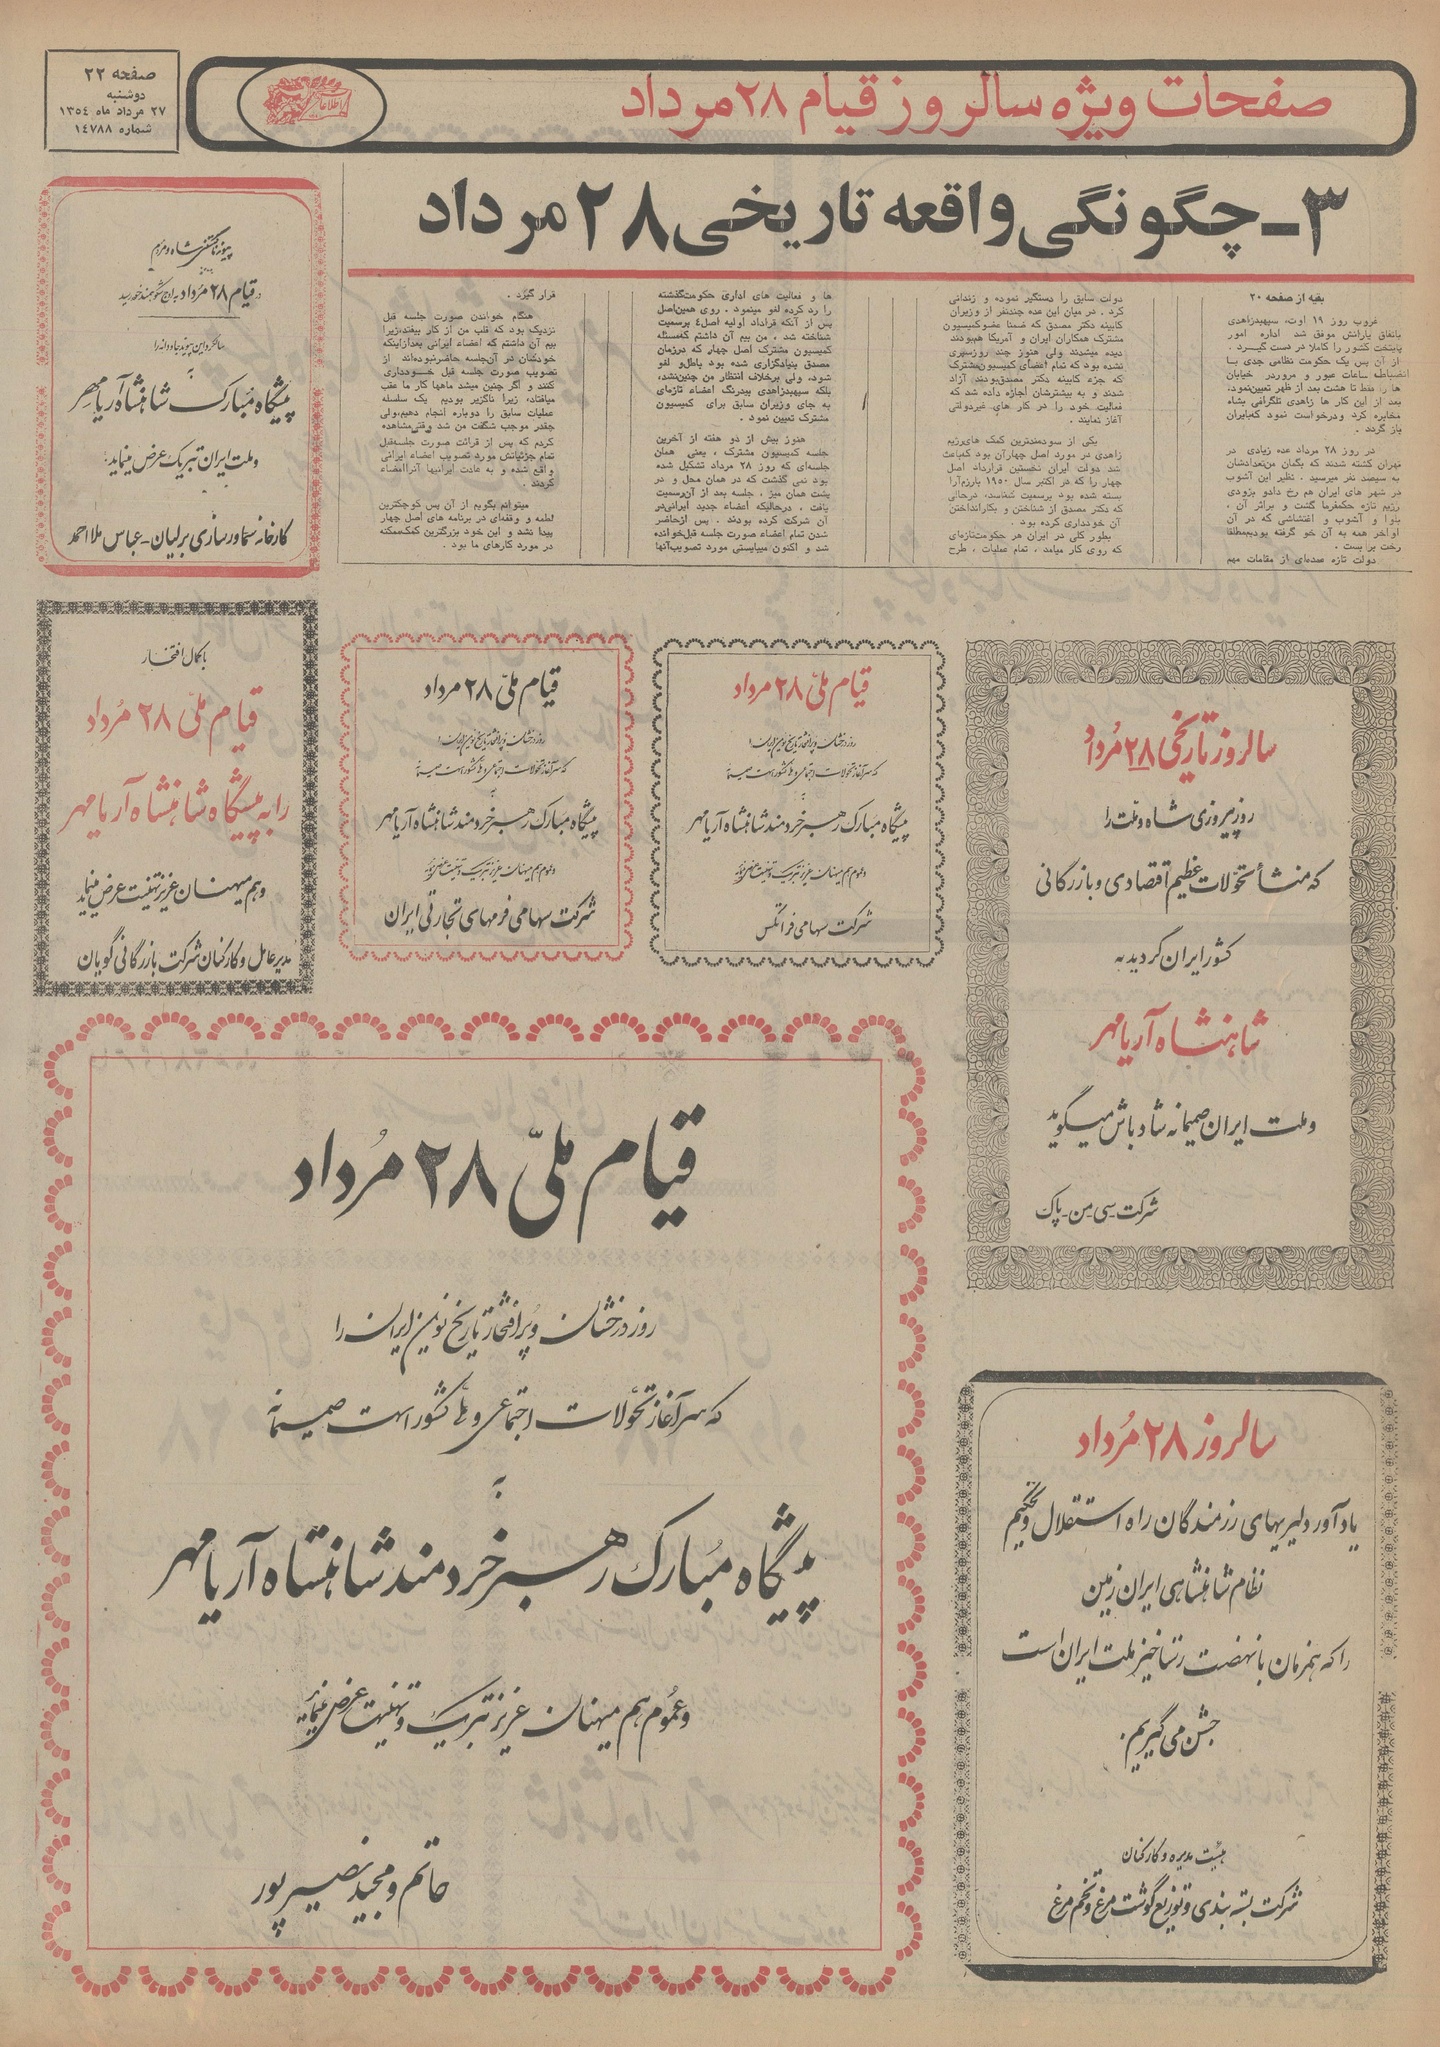 صفحه ۲۲
دوشنبه
۲۷ مرداد ماه ۱۳۵٤
شماره ۱٤۷۸۸
صفحات ویژه سالروز قیام ۲۸ مرداد
اطلاعات
۳ــ چگونگی واقعه تاریخی ۲۸ مرداد
بقیه از صفحه ۲۰
غروب روز ۱۹ اوت، سپهبدزاهدی
باتفاق یارانش موفق شد اداره امور
پایتخت کشور را کاملا در دست گیرد .
از آن پس یک حکومت نظامی جدی با
انضباط ساعات عبور و مروردر خیابان
ها را فقط تا هشت بعد از ظهر تعیین‌نمود،
بعد از این کار ها زاهدی تلگرافی بشاه
مخابره کرد ودرخواست نمود که‌بایران
باز گردد .
در روز ۲۸ مرداد عده زیادی در
تهران کشته شدند که بگمان من‌تعدادشان
به سیصد نفر میرسید . نظیر این آشوب
در شهر های ایران هم رخ دادو بزودی
رژیم تازه حکمفرما گشت و براثر آن ،
بلوا و آشوب و اغتشاشی که در آن
اواخر همه به آن خو گرفته بودیم‌مطلقا
رخت بر بست .
دولت تازه عده‌ای از مقامات مهم
دولت سابق را دستگیر نموده و زندانی
کرد . در میان این عده چندنفر از وزیران
کابینه دکتر مصدق که ضمنا عضوکمیسیون
مشترک همکاران ایران و آمریکا هم‌بودند
دیده میشدند ولی هنوز چند روزسپری
نشده بود که تمام اعضای کمیسیون‌مشترک
که جزء کابینه دکتر مصدق‌بودند آزاد
شدند و به بیشترشان اجازه داده شد که
فعالیت خود را در کار های غیردولتی
آغاز نمایند .
یکی از سودمندترین کمک های‌رژیم
زاهدی در مورد اصل چهارآن بودکه‌باعث
شد دولت ایران نخستین قرارداد اصل
چهار را که در اکتبر سال ۱۹۵۰ بارزم‌آرا
بسته شده بود برسمیت شناسد، درحالی
که دکتر مصدق از شناختن و بکارانداختن
آن خودداری کرده بود .
بطور کلی در ایران هر حکومت‌تازه‌ای
که روی کار میامد ، تمام عملیات ، طرح
ها و فعالیت های اداری حکومت‌گذشته
را رد کرده لغو مینمود . روی همین‌اصل
پس از آنکه قراداد اولیه اصل٤ برسمیت
شناخته شد ، من بیم آن داشتم که‌مسئله
کمیسیون مشترک اصل چهار که درزمان
مصدق بنیادگزاری شده بود باطل‌و لغو
شود، ولی برخلاف انتظار من چنین‌نشد،
بلکه سپهبدزاهدی بیدرنگ اعضاء تازه‌ای
به جای وزیران سابق برای کمیسیون
مشترک تعیین نمود .
هنوز بیش از دو هفته از آخرین
جلسه کمیسیون مشترک ، یعنی همان
جلسه‌ای که روز ۲۸ مرداد تشکیل شده
بود نمی گذشت که در همان محل و در
پشت همان میز ، جلسه بعد از آن‌رسمیت
یافت ، درحالیکه اعضاء جدید ایرانی‌در
آن شرکت کرده بودند . پس ازحاضر
شدن تمام اعضاء صورت جلسه قبل‌خوانده
شد و اکنون میبایستی مورد تصویب‌آنها
قرار گیرد .
هنگام خواندن صورت جلسه قبل
نزدیک بود که قلب من از کار بیفتد،زیرا
بیم آن داشتم که اعضاء ایرانی بعدازاینکه
خودشان در آن‌جلسه حاضرنبوده‌اند از
تصویب صورت جلسه قبل خودداری
کنند و اگر چنین میشد ماهها کار ما عقب
میافتاد، زیرا ناگزیر بودیم یک سلسله
عملیات سابق را دوباره انجام دهیم،ولی
چقدر موجب شگفت من شد وقتی‌مشاهده
کردم که پس از قرائت صورت جلسه‌قبل
تمام جزئیاتش مورد تصویب اعضاء ایرانی
واقع شده و به عادت ایرانیها آنراامضاء
کردند .
میتوانم بگویم از آن پس کوچکترین
لطمه و وقفه‌ای در برنامه های اصل چهار
پیدا نشد و این خود بزرگترین کمک‌ممکنه
در مورد کارهای ما بود .
پیوند ناگسستنی شاه و مردم
در قیام ۲۸ مرداد به اوج شکوهمند خود رسید
سالگرد این پیوند جاودانه را
به
پیشگاه مبارک شاهنشاه آریامهر
و ملت ایران تبریک عرض مینماید
کارخانه سماورسازی برلیان ـ عباس ملااحمد
با کمال افتخار
قیام ملی ۲۸ مرداد
را به پیشگاه شاهنشاه آریامهر
و هم میهنان عزیز تهنیت عرض مینماید
مدیرعامل و کارکنان شرکت بازرگانی گویان
قیام ملی ۲۸ مرداد
روز درخشان و پرافتخار تاریخ نوین ایران را
که سرآغاز تحولات اجتماعی و ملی کشور است صمیمانه
به
پیشگاه مبارک رهبر خردمند شاهنشاه آریامهر
و عموم هم میهنان عزیز تبریک و تهنیت عرض مینماید
شرکت سهامی فرمهای تجارتی ایران
قیام ملی ۲۸ مرداد
روز درخشان و پرافتخار تاریخ نوین ایران را
که سرآغاز تحولات اجتماعی و ملی کشور است صمیمانه
به
پیشگاه مبارک رهبر خردمند شاهنشاه آریامهر
و عموم هم میهنان عزیز تبریک و تهنیت عرض مینماید
شرکت سهامی فرانکس
سالروز تاریخی ۲۸ مرداد
روز پیروزی شاه و ملت را
که منشأ تحولات عظیم اقتصادی و بازرگانی
کشور ایران گردید به
شاهنشاه آریامهر
و ملت ایران صمیمانه شادباش میگوید
شرکت سی ـ من ـ پاک
قیام ملی ۲۸ مرداد
روز درخشان و پرافتخار تاریخ نوین ایران را
که سرآغاز تحولات اجتماعی و ملی کشور است صمیمانه
به
پیشگاه مبارک رهبر خردمند شاهنشاه آریامهر
و عموم هم میهنان عزیز تبریک و تهنیت عرض مینماید
حاتم و مجید نصیرپور
سالروز ۲۸ مرداد
یادآور دلیریهای رزمندگان راه استقلال و تحکیم
نظام شاهنشاهی ایران زمین
را که همزمان با نهضت رستاخیز ملت ایران است
جشن می گیریم.
هیئت مدیره و کارکنان
شرکت بسته بندی و توزیع گوشت مرغ و تخم مرغ